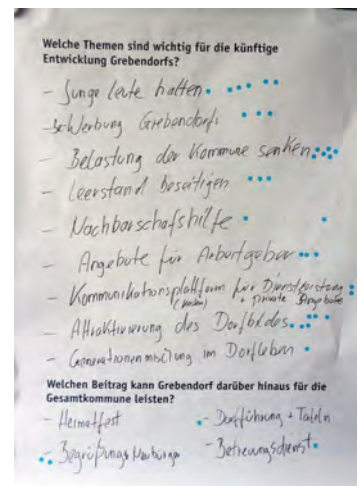 Welche Themen sind wichtig für die künftige
Entwicklung Grebendorfs?
- Junge Leute halten
- Werbung Grebendorfs
- Belastung der Kommune senken
- Leerstand beseitigen
- Nachbarschafshilfe
- Angebote für Arbeitgeber
- Kommunikationsplattform für Dienstleistung
+ private Angebote
- Attraktivierung des Dorfbildes
- Generationenmischung im Dorfleben
Welchen Beitrag kann Grebendorf darüber hinaus für die
Gesamtkommune leisten?
- Heimatfest - Dorfführung + Tafeln
- Begrüßung Neubürger - Betreuungsdienst